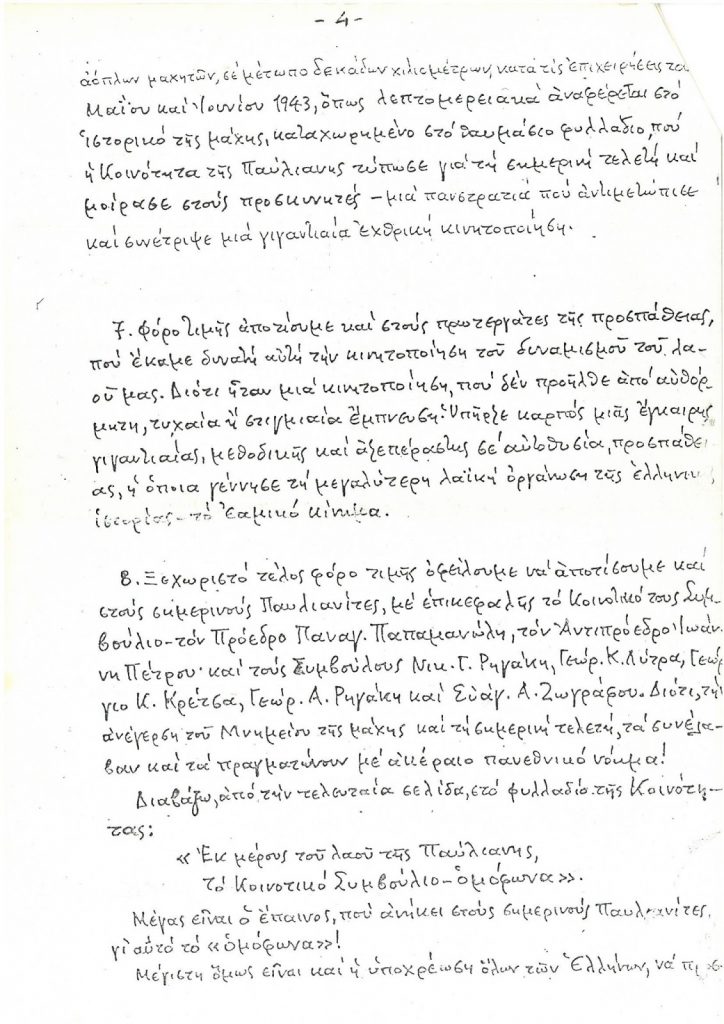 - 4 -
ἀόπλων μαχητῶν, σέ μέτωπο δεκάδων χιλιομέτρων, κατά τίς ἐπιχειρήσεις το
Μαΐου καί Ἰουνίου 1943, ὅπως λεπτομερειακά ἀναφέρεται στό
ἱστορικό τῆς μάχης, καταχωρημένο στό θαυμάσιο φυλλάδιο, πού
ἡ Κοινότητα τῆς Παύλιανης τύπωσε γιά τή σημερινή τελετή καί
μοίρασε στούς προσκυνητές – μιά πανστρατιά πού ἀντιμετώπισε
καί συνέτριψε μιά γιγαντιαία ἐχθρική κινητοποίηση.
7. Φόρο τιμῆς ἀποτίουμε καί στούς πρωτεργάτες τῆς προσπάθειας,
πού ἔκαμε δυνατή αὐτή τήν κινητοποίηση τοῦ δυναμισμοῦ τοῦ λα-
οῦ μας. Διότι ἦταν μιά κινητοποίηση, πού δέν προῆλθε ἀπό αὐθόρ-
μητη, τυχαία ἤ στιγμιαία ἔμπνευση. Ὑπῆρξε καρπός μιᾶς ἔγκαιρης
γιγαντιαίας, μεθοδικῆς καί ἀξεπέραστης σέ αὐτοθυσία, προσπάθει-
ας, ἡ ὁποία γέννησε τή μεγαλύτερη λαϊκή ὀργάνωση τῆς ἑλληνικ
ἱστορίας – τό Ἐαμικό κίνημα.
8. Ξεχωριστό τέλος φόρο τιμῆς ὀφείλουμε νά ἀποτίσουμε καί
στούς σημερινούς Παυλιανίτες, μέ ἐπικεφαλῆς τό Κοινοτικό τους Συμ-
βούλιο – τόν Πρόεδρο Παναγ. Παπαμανώλη, τόν Ἀντιπρόεδρο Ἰωάν-
νη Πέτρου· καί τούς Συμβούλους Νικ. Γ. Ρηγάκη, Γεώρ. Κ. Λύτρα, Γεώρ
γιο Κ. Κρέτσα, Γεώρ. Α. Ρηγάκη καί Εὐάγ. Α. Ζωγράφου. Διότι, τήν
ἀνέγερση τοῦ Μνημείου τῆς μάχης καί τή σημερινή τελετή, τά συνέλα-
βαν καί τά πραγματώνουν μέ ἀκέραιο πανεθνικό νόημα!
Διαβάζω, ἀπό τήν τελευταία σελίδα, στό φυλλάδιο τῆς Κοινότη-
τας:
« Ἐκ μέρους τοῦ λαοῦ τῆς Παύλιανης,
τό Κοινοτικό Συμβούλιο – ὁμόφωνα».
Μέγας εἶναι ὁ ἔπαινος, πού ἀνήκει στούς σημερινούς Παυλιανίτες,
γι αὐτό τό «ὁμόφωνα»!
Μέγιστη ὅμως εἶναι καί ἡ ὑποχρέωση ὅλων τῶν Ἑλλήνων, νά